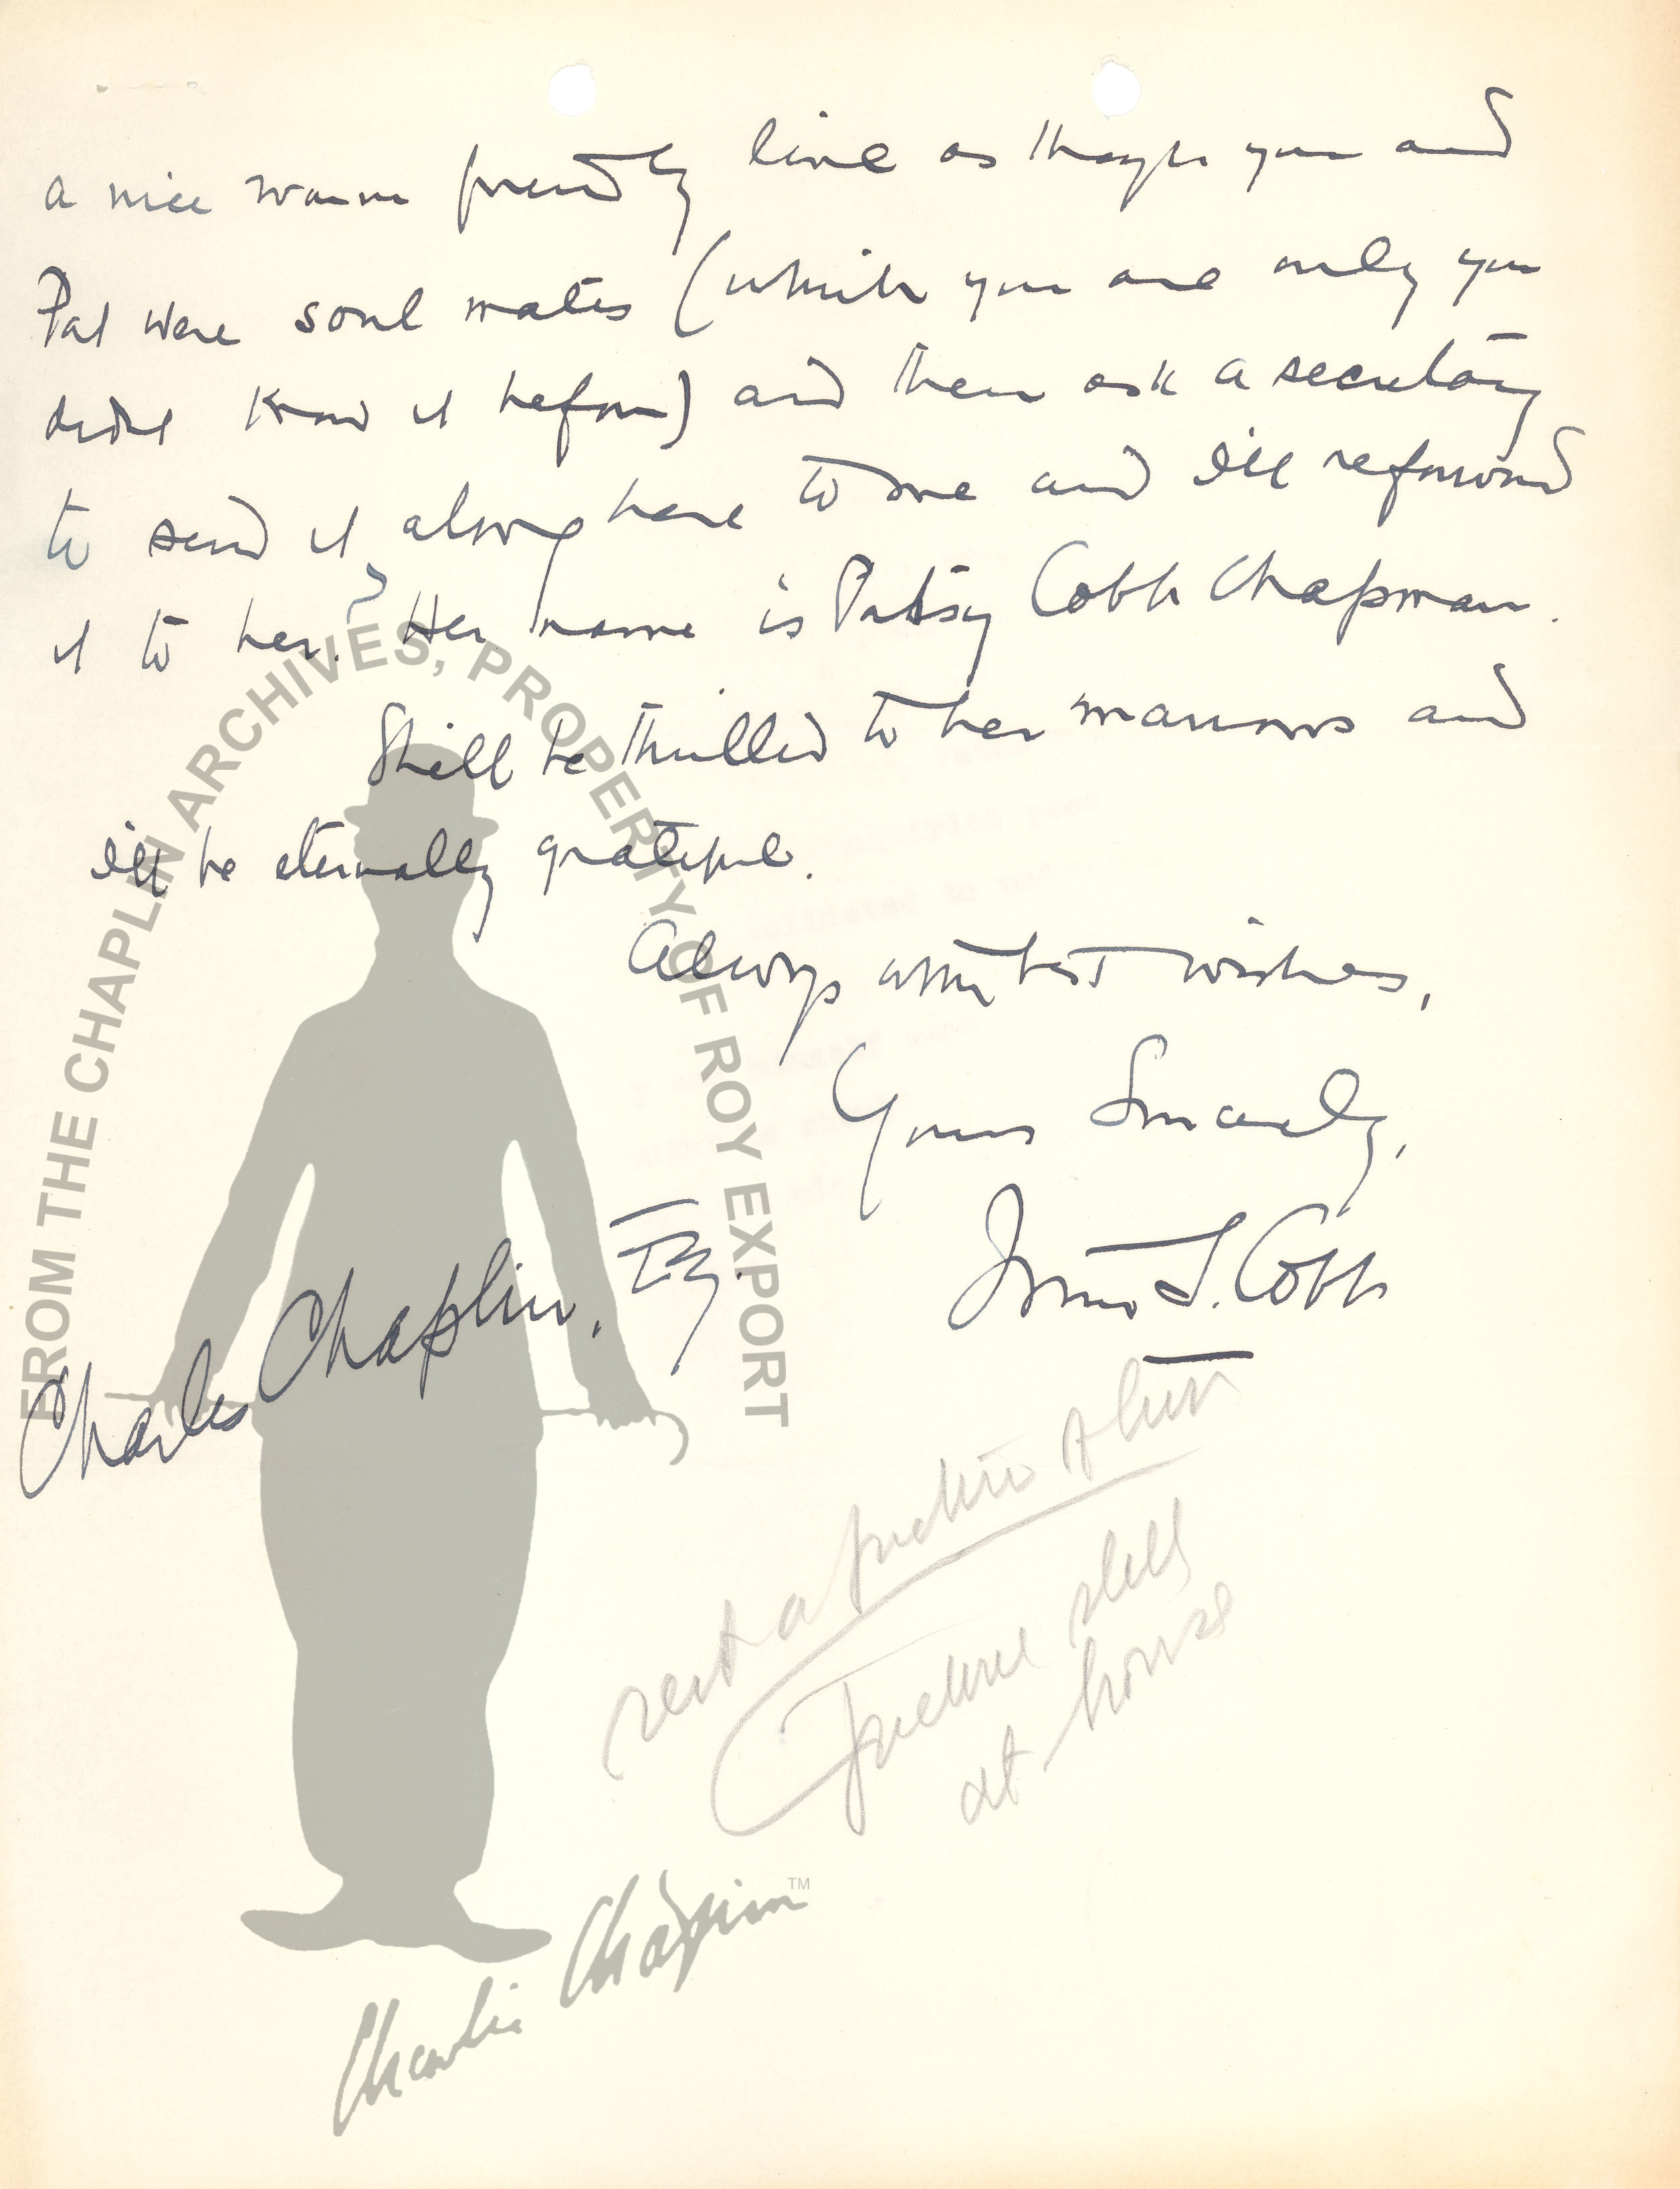 a nice warm friendly line as though you and
Pat were soul mates (which you are only you
didnt know it before) and then ask a secretary
to send it along here to me and I'll reforward
it to her? Her name is Patsy Cobb Chapman.
She'll be thrilled to her marrows and
I'll be eternally grateful.
Always with best wishes,
Yours Sincerely,
Irvin S. Cobb
Charles Chaplin, Esq.
sent a picture
Picture still
at house
FROM THE CHAPLIN ARCHIVES, PROPERTY OF ROY EXPORT
Charlie Chaplin™